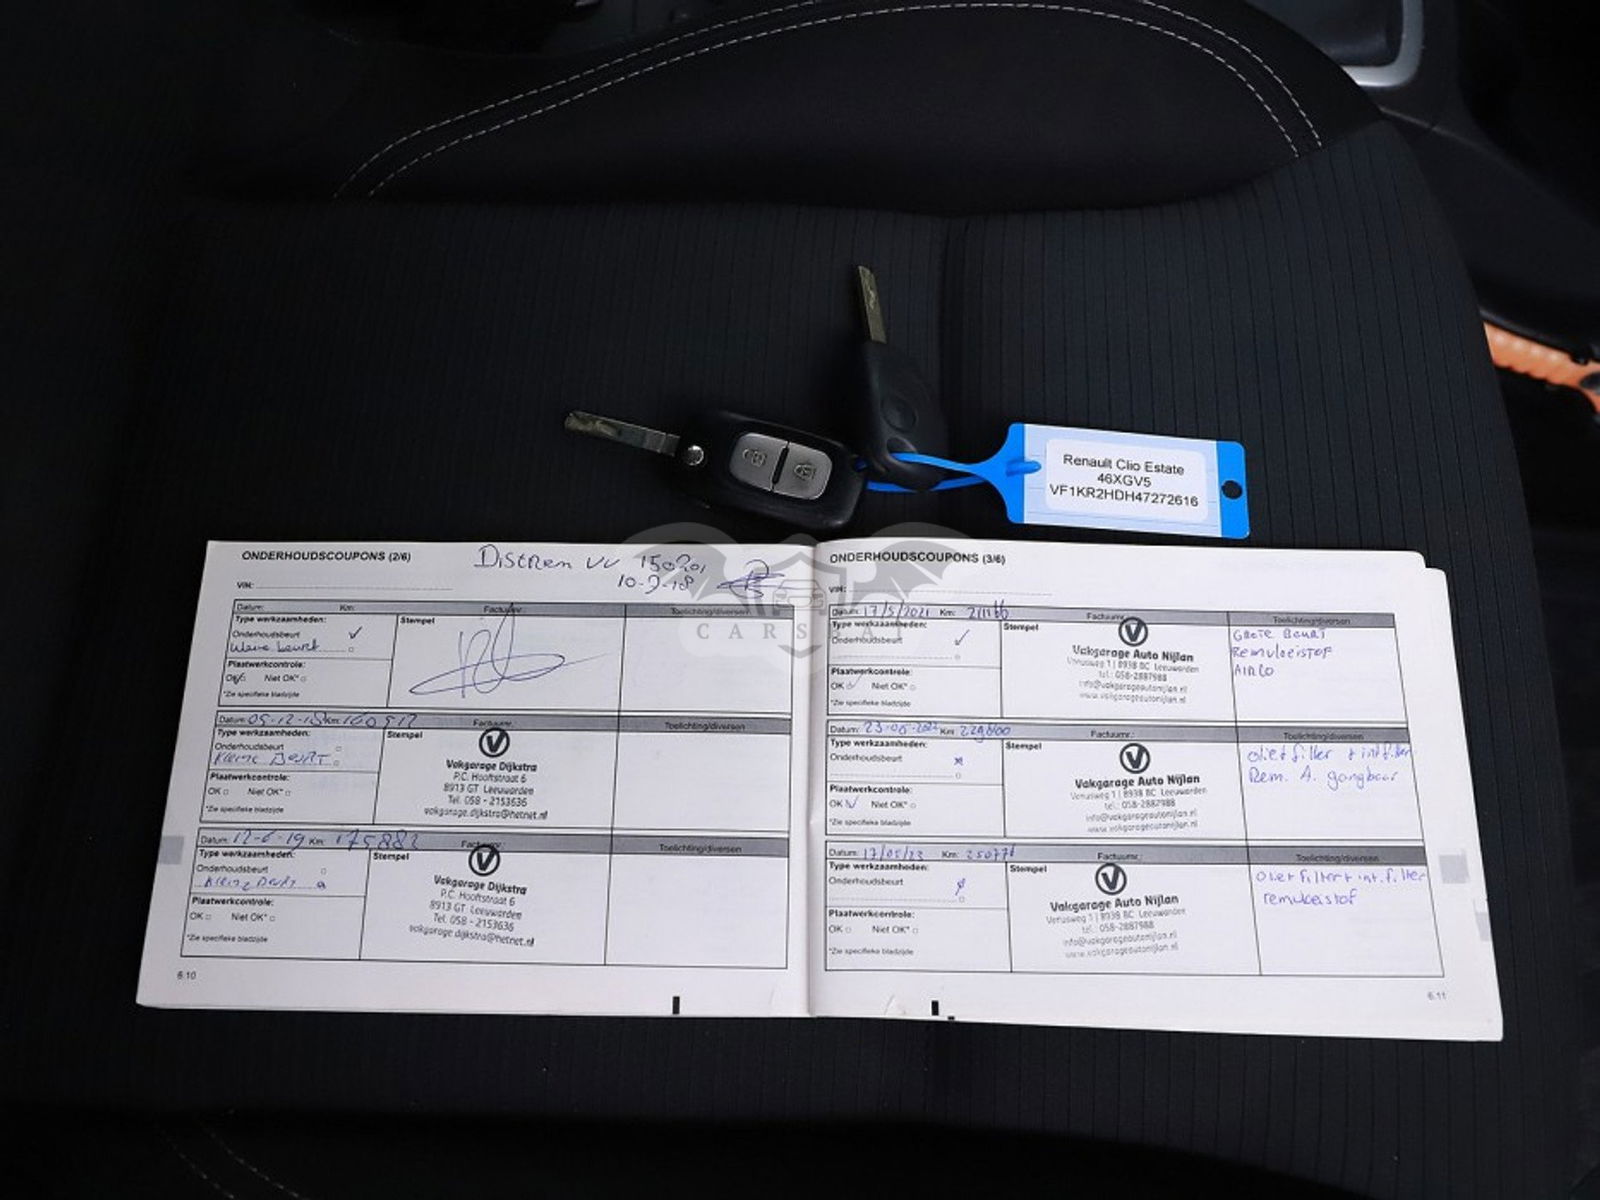 Renault Clio Estate
46XGV5
VF1KR2HDH47272616
CARS
ONDERHOUDSCOUPONS (2/6)
10-9-18
VIN:
Datum: Km: Factuurnr.: Toelichting/diversen
Type werkzaamheden: Stempel
Onderhoudsbeurt
Plaatwerkcontrole:
OK Niet OK*
*Zie specifieke bladzijde
Datum: 05-12-18 Km: 160512 Factuurnr.: Toelichting/diversen
Type werkzaamheden: Stempel
Onderhoudsbeurt
Kleine Beurt
Plaatwerkcontrole:
OK Niet OK*
*Zie specifieke bladzijde
Vakgarage Dijkstra
P.C. Hooftstraat 6
8913 GT Leeuwarden
Tel. 058 - 2153636
vakgarage.dijkstra@hetnet.nl
Datum: 12-6-19 Km: 175882 Factuurnr.: Toelichting/diversen
Type werkzaamheden: Stempel
Onderhoudsbeurt
Kleine Beurt
Plaatwerkcontrole:
OK Niet OK*
*Zie specifieke bladzijde
Vakgarage Dijkstra
P.C. Hooftstraat 6
8913 GT Leeuwarden
Tel. 058 - 2153636
vakgarage.dijkstra@hetnet.nl
6.10
ONDERHOUDSCOUPONS (3/6)
VIN:
Datum: 17/5/2021 Km: Factuurnr.: Toelichting/diversen
Type werkzaamheden: Stempel
Onderhoudsbeurt
Plaatwerkcontrole:
OK Niet OK*
*Zie specifieke bladzijde
Vakgarage Auto Nijlan
Venusweg 1 | 8938 BC Leeuwarden
tel.: 058-2887988
info@vakgarageautonijlan.nl
www.vakgarageautonijlan.nl
Grote Beurt
Remvloeistof
Airco
Datum: 23-05-2022 Km: Factuurnr.: Toelichting/diversen
Type werkzaamheden: Stempel
Onderhoudsbeurt
Plaatwerkcontrole:
OK Niet OK*
*Zie specifieke bladzijde
Vakgarage Auto Nijlan
Venusweg 1 | 8938 BC Leeuwarden
tel.: 058-2887988
info@vakgarageautonijlan.nl
www.vakgarageautonijlan.nl
olie+filter + int.filter
Rem. A. gangbaar
Datum: 17/05/23 Km: Factuurnr.: Toelichting/diversen
Type werkzaamheden: Stempel
Onderhoudsbeurt
Plaatwerkcontrole:
OK Niet OK*
*Zie specifieke bladzijde
Vakgarage Auto Nijlan
Venusweg 1 | 8938 BC Leeuwarden
tel.: 058-2887988
info@vakgarageautonijlan.nl
www.vakgarageautonijlan.nl
olie+filter+int.filter
remvloeistof
6.11